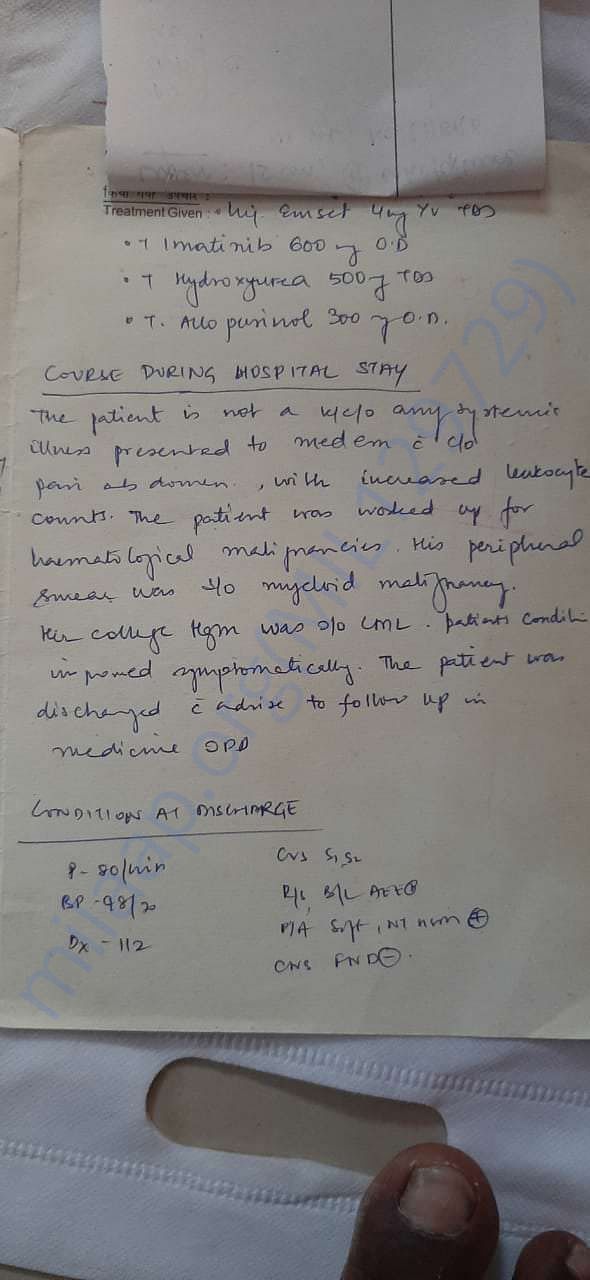 किया गया उपचार :
Treatment Given : • Inj. Emset 4mg IV TDS
• T Imatinib 600 mg O.D
• T Hydroxyurea 500 mg TDS
• T. Allopurinol 300 mg O.D.
COURSE DURING HOSPITAL STAY
The patient is not a k/c/o any systemic
illness presented to medem c̄ c/o
pain abdomen, with increased leukocyte
counts. The patient was worked up for
haematological malignancies. His peripheral
smear was s/o myeloid malignancy.
His college Hgm was s/o CML. patients condition
improved symptomatically. The patient was
discharged c̄ advise to follow up in
medicine OPD
CONDITION AT DISCHARGE
P- 80/min
BP -98/70
Dx - 112
CVS S1,S2
R/S B/L AEE⊕
P/A Soft, NT ⊕
CNS FND⊖.
milaap.org(MIL1129729)